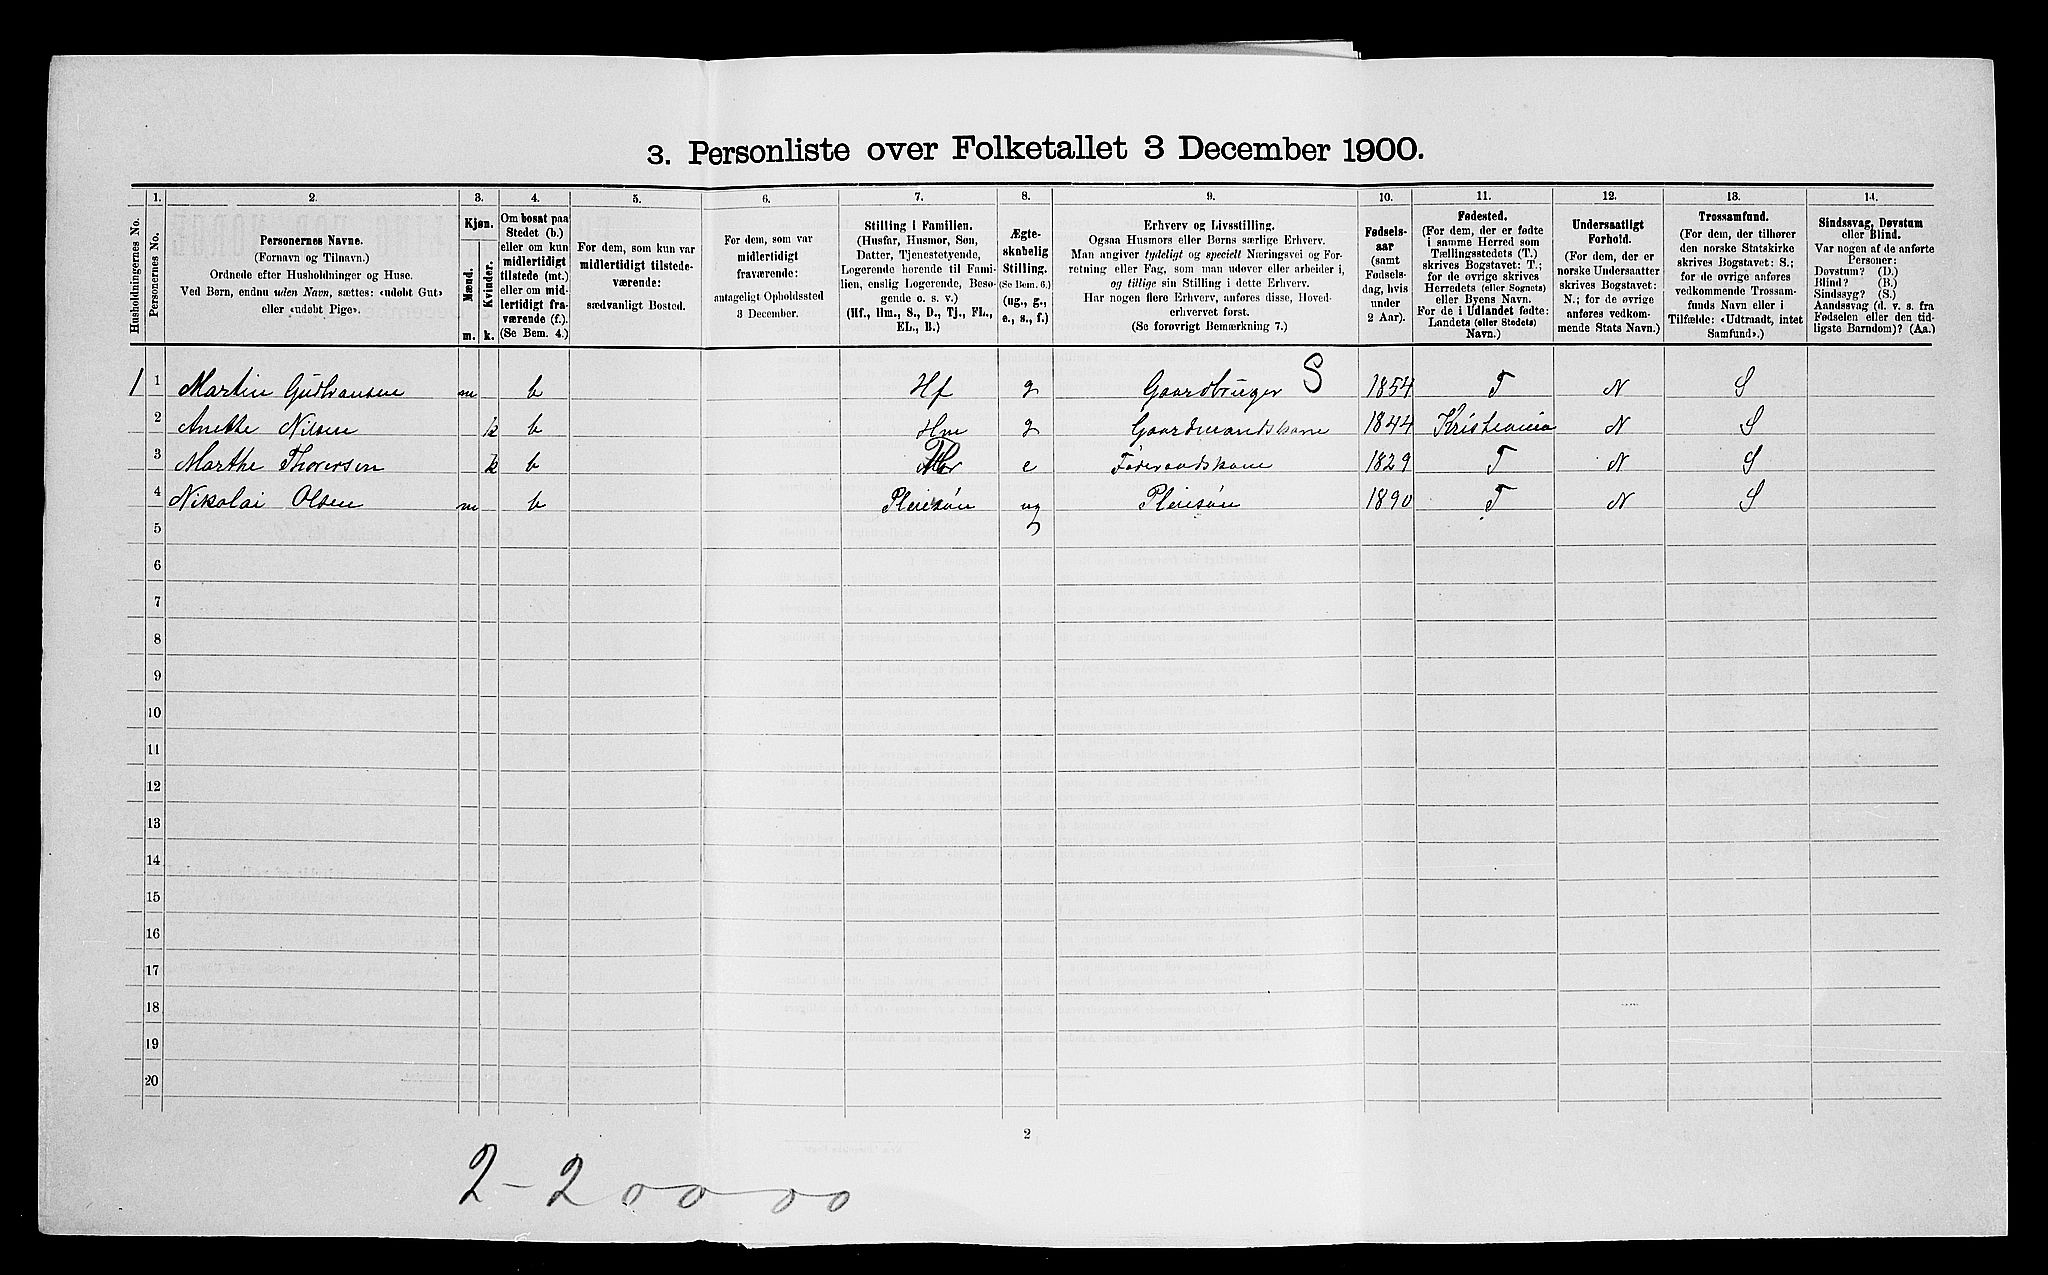 3. Personliste over Folketallet 3 December 1900.
Husholdningernes No.
1. Personernes No.
2. Personernes Navne.
(Fornavn og Tilnavn.)
Ordnede efter Husholdninger og Huse.
Ved Børn, endnu uden Navn, sættes: «udøbt Gut»
eller «udøbt Pige».
3. Kjøn.
Mænd. m.
Kvinder. k.
4. Om bosat paa
Stedet (b.)
eller om kun
midlertidigt
tilstede (mt.)
eller om mid-
lertidigt fra-
værende (f.).
(Se Bem. 4.)
5. For dem, som kun var
midlertidigt tilstede-
værende:
sædvanligt Bosted.
6. For dem, som var
midlertidigt
fraværende:
antageligt Opholdssted
3 December.
7. Stilling i Familien.
(Husfar, Husmor, Søn,
Datter, Tjenestetyende,
Logerende hørende til Fami-
lien, enslig Logerende, Besø-
gende o. s. v.)
(Hf., Hm., S., D., Tj., FL.,
EL., B.)
8. Ægte-
skabelig
Stilling.
(Se Bem. 6.)
(ug., g.,
e., s., f.)
9. Erhverv og Livsstilling.
Ogsaa Husmors eller Børns særlige Erhverv.
Man angiver tydeligt og specielt Næringsvei og For-
retning eller Fag, som man udøver eller arbeider i,
og tillige sin Stilling i dette Erhverv.
Har nogen flere Erhverv, anføres disse, Hoved-
erhvervet først.
(Se forøvrigt Bemærkning 7.)
10. Fødsels-
aar
(samt
Fødsels-
dag, hvis
under
2 Aar).
11. Fødested.
(For dem, der er fødte
i samme Herred som
Tællingsstedets (T.)
skrives Bogstavet: T.;
for de øvrige skrives
Herredets (eller Sognets)
eller Byens Navn.
For de i Udlandet fødte:
Landets (eller Stedets)
Navn.)
12. Undersaatligt
Forhold.
(For dem, der er
norske Undersaatter
skrives Bogstavet:
N.; for de øvrige
anføres vedkom-
mende Stats Navn.)
13. Trossamfund.
(For dem, der tilhører
den norske Statskirke
skrives Bogstavet: S.;
for de øvrige anføres
vedkommende Trossam-
funds Navn eller i
Tilfælde: «Udtraadt, intet
Samfund».)
14. Sindssvag, Døvstum
eller Blind.
Var nogen af de anførte
Personer:
Døvstum? (D.)
Blind? (B.)
Sindssyg? (S.)
Aandssvag (d. v. s. fra
Fødselen eller den tid-
ligste Barndom)? (Aa.)
1 1 Martin Gudbransen m b Hf g Gaardbruger S 1854 T N S
2 Anette Nilsen k b Hm g Gaardmandskone 1844 Kristiania N S
3 Marthe Thoresen k b e Føderaadskone 1829 T N S
4 Nikolai Olsen m b Pleiesøn ug Pleiesøn 1890 T N S
5
6
7
8
9
10
11
12
13
14
15
16
17
18
19
20
2
2-2 00 00